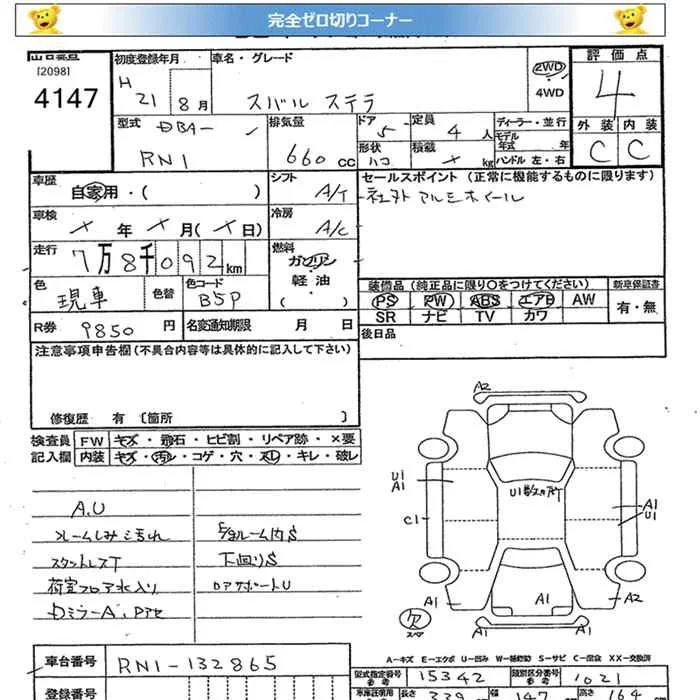 完全ゼロ切りコーナー
出品番号
[2098]
4147
初度登録年月
H 21 8月
車名・グレード
スバル ステラ
2WD
・
4WD
評価点
4
型式 DBA-
RN1
排気量
660cc
ドア
5
定員
4人
ディーラー・並行
モデル年式 年
ハンドル 左・右
形状
ハコ
積載
kg
外装 内装
C C
車歴
自家用・( )
シフト
A/T
セールスポイント (正常に機能するものに限ります)
社外アルミホイール
車検
年 月( 日)
冷房
A/C
走行
7万8千092km
燃料
ガソリン
・
軽油
( )
色
現車
色替
色コード
B5P
装備品 (純正品に限り○をつけてください)
PS PW ABS エアB AW
SR ナビ TV カワ
新車保証書
有・無
R券 9850円
名変通知期限 月 日
後日品
注意事項申告欄(不具合内容等は具体的に記入して下さい)
修復歴 有 〔箇所 〕
検査員 FW キズ・飛石・ヒビ割・リペア跡・×要
記入欄 内装 キズ・汚れ・コゲ・穴・スレ・キレ・破レ
A.U
フレームしみ汚れ
スタットレスT
荷室フロア水入り
下回りS
ロアサポートU
A2
U1
A1
U1数ヵ所
A1
U1
C1
A1
A1
A2
A1
欠
スペア
A-キズ E-エクボ U-凹み W-補修跡 S-サビ C-腐食 XX-交換済
車台番号 RN1-132865
型式指定番号 15342
類別区分番号 1021
登録番号
長さ 339
幅 147
高さ 164